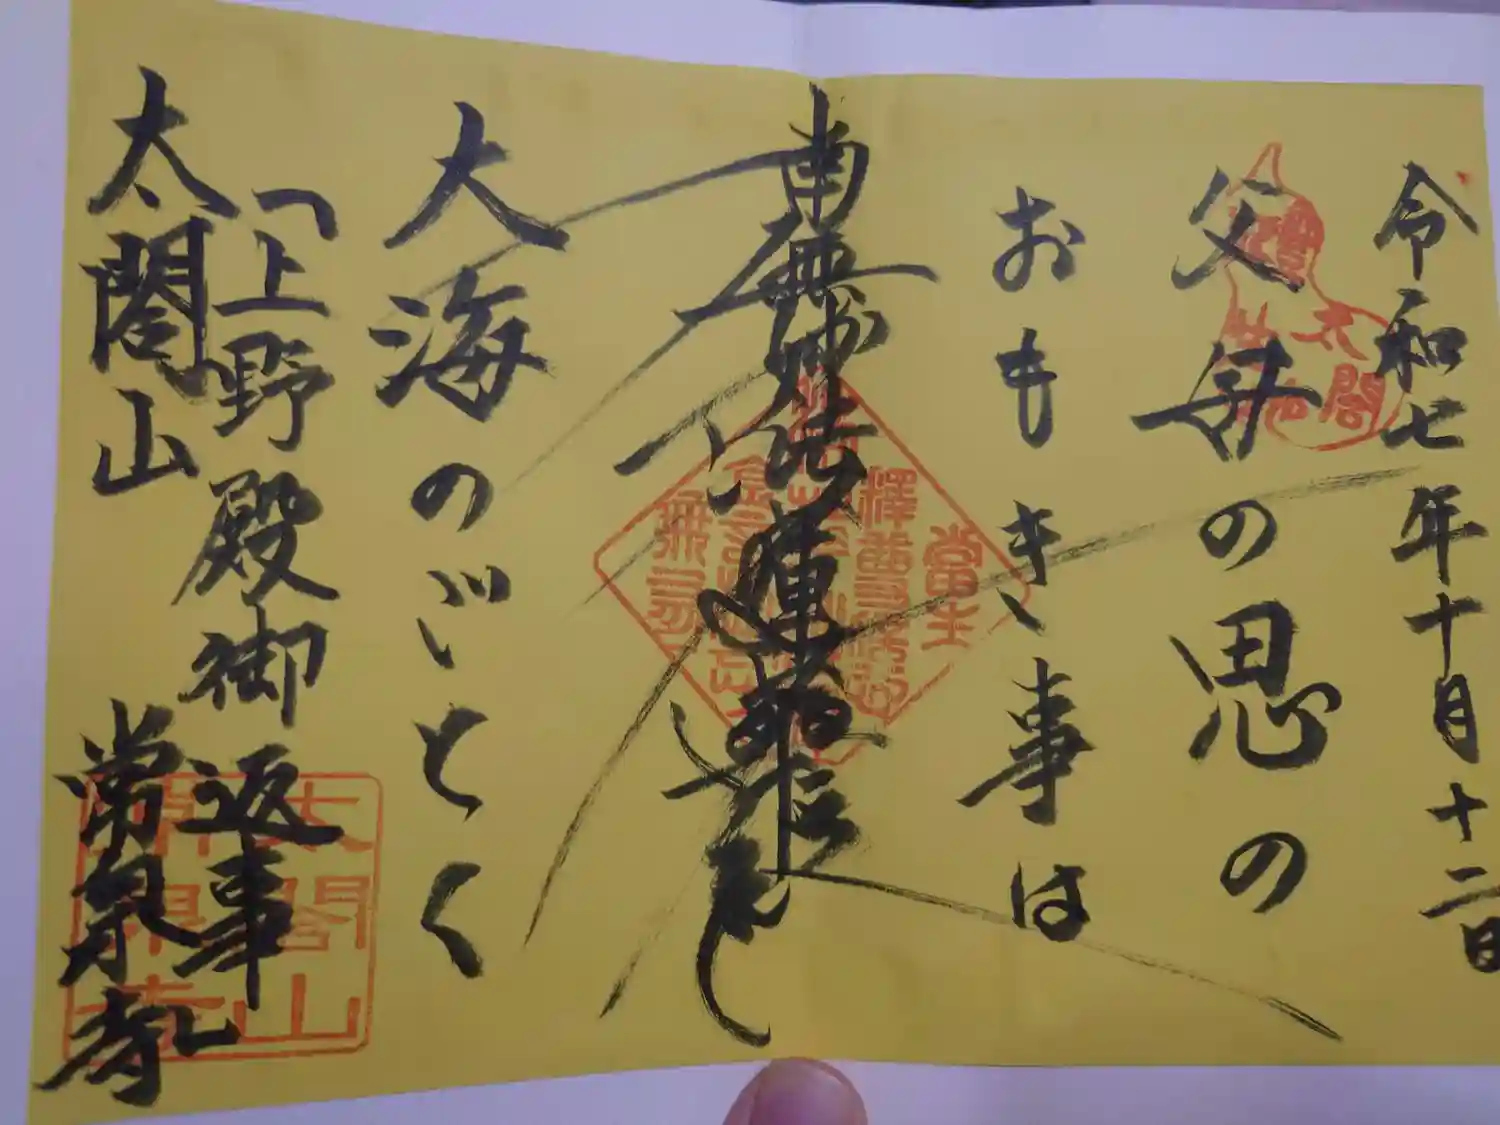 令和七年十月十二日
父母の恩の
おもき事は
南無妙法蓮華経
大海のごとく
「上野殿御返事」
太閤山
常泉寺
當主
太閤山